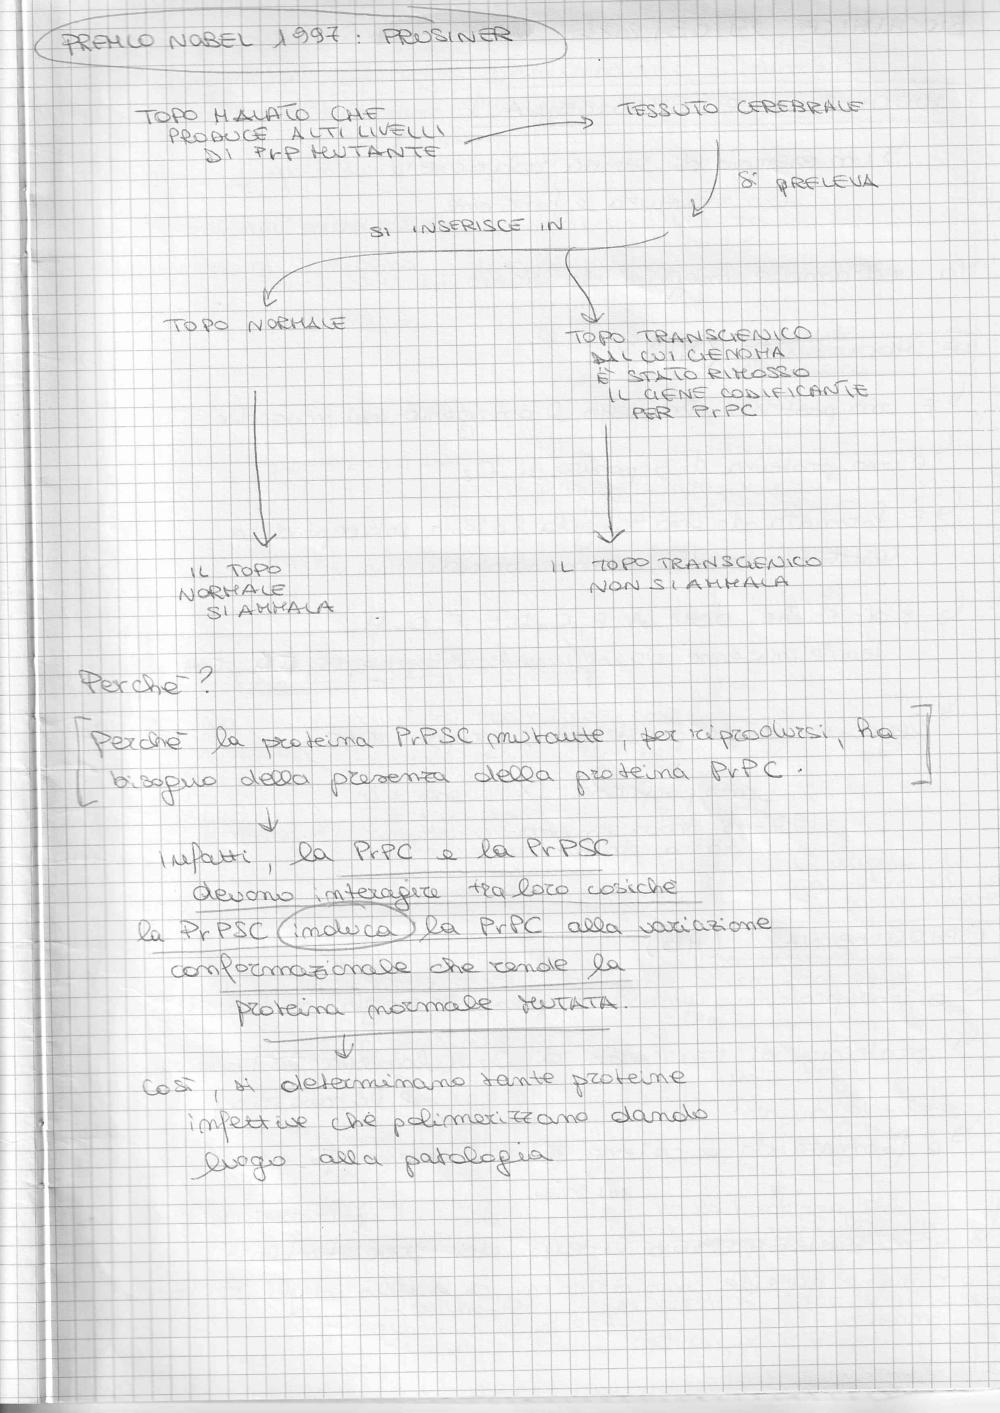 PREMIO NOBEL 1997: PRUSINER
TOPO MALATO CHE
PRODUCE ALTI LIVELLI
DI PrP MUTANTE
TESSUTO CEREBRALE
Si PRELEVA
SI INSERISCE IN
TOPO NORMALE
TOPO TRANSGENICO
DAL CUI GENOMA
È STATO RIMOSSO
IL GENE CODIFICANTE
PER PrPC
IL TOPO
NORMALE
SI AMMALA
IL TOPO TRANSGENICO
NON SI AMMALA
Perché?
Perché la proteina PrPSC mutante, per riprodursi, ha
bisogno della presenza della proteina PrPC.
Infatti, la PrPC e la PrPSC
devono interagire tra loro cosicché
la PrPSC induca la PrPC alla variazione
conformazionale che rende la
proteina normale MUTATA.
Così, si determinano tante proteine
infettive che polimerizzano dando
luogo alla patologia